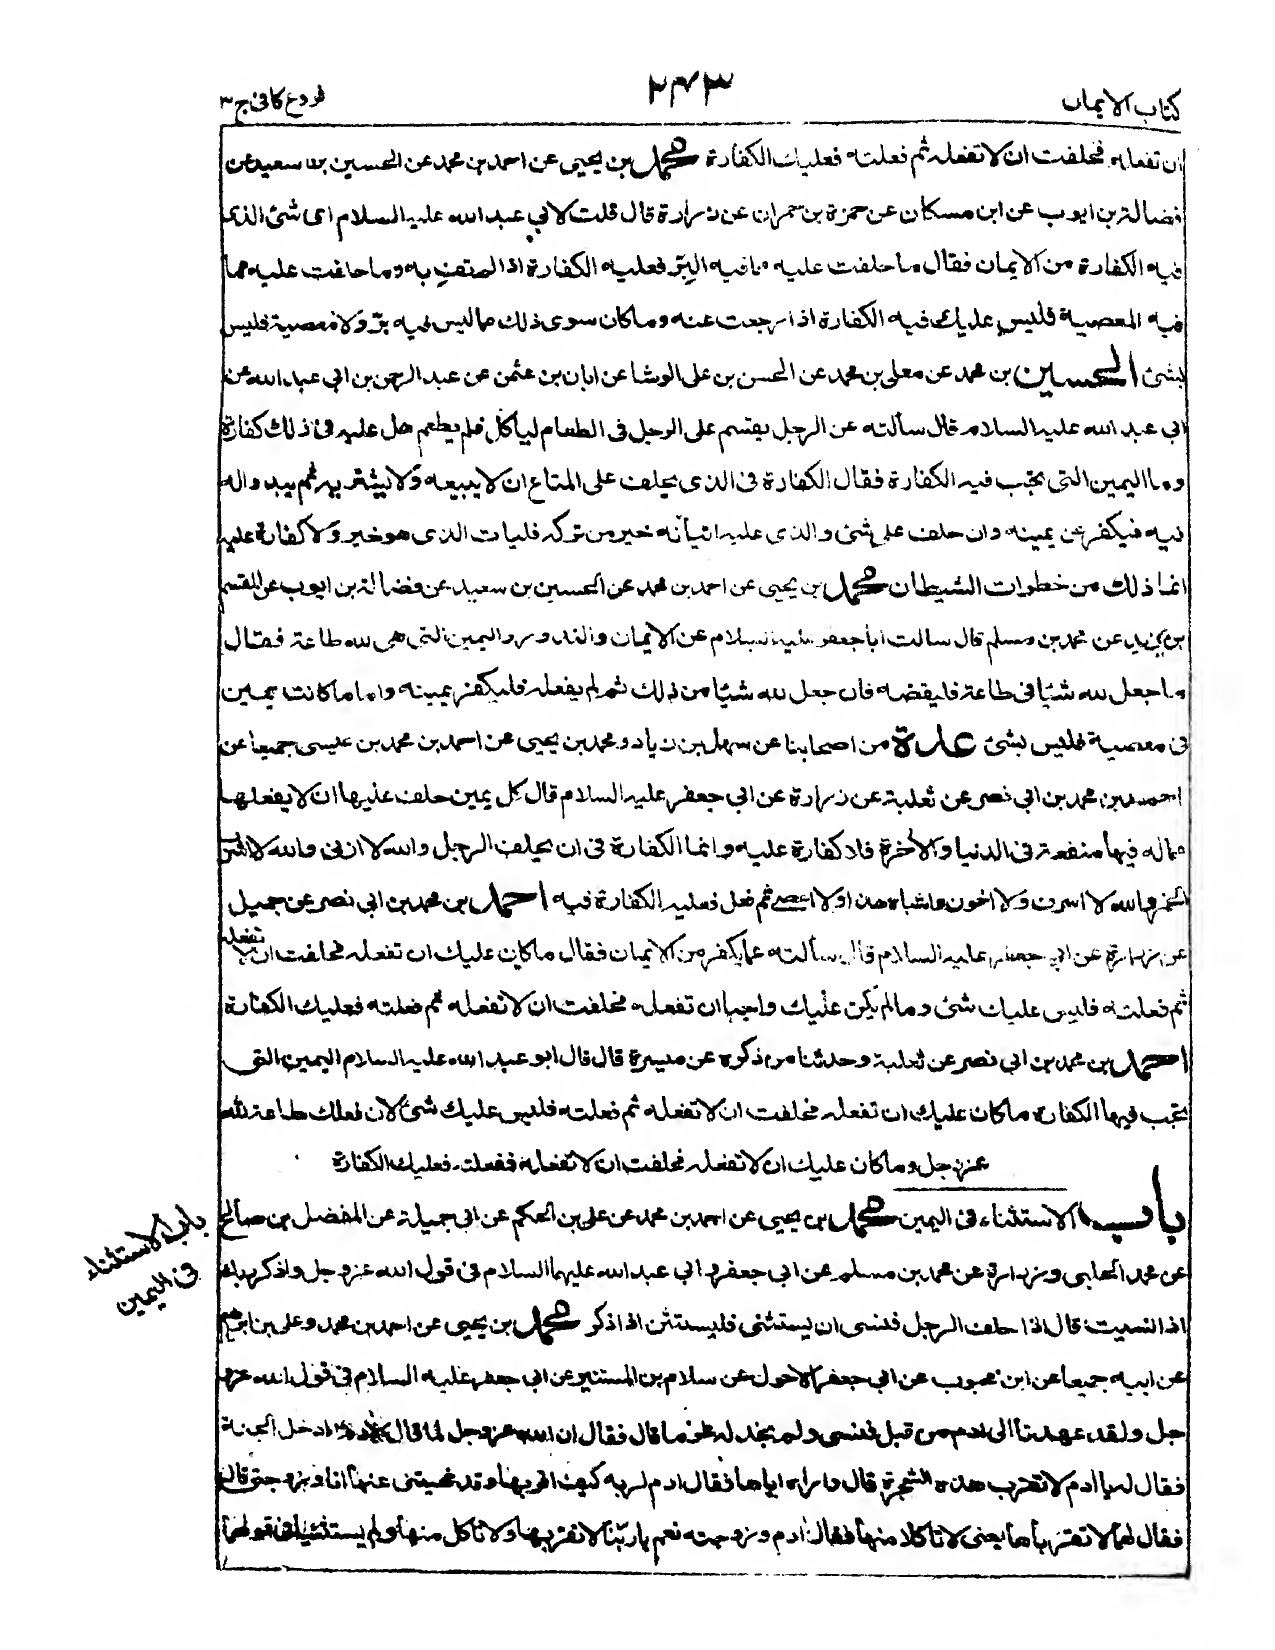 كتاب الايمان
٢٤٣
فروع كافى ج ٣
ان تفعله فحلفت ان لا تفعله ثم فعلته فعليك الكفارة محمد بن يحيى عن احمد بن محمد عن الحسين بن سعيد عن
فضالة بن ايوب عن ابن مسكان عن حمزة بن حمران عن زرارة قال قلت لابي عبد الله عليه السلام اى شئ الذى
فيه الكفارة من الايمان فقال ما حلفت عليه مما فيه البرّ فعليه الكفارة اذا لم تفِ به وما حلفت عليه مما
فيه المعصية فليس عليك فيه الكفارة اذا رجعت عنه وما كان سوى ذلك مما ليس فيه برّ ولا معصية فليس
بشئ الحسين بن محمد عن معلى بن محمد عن الحسن بن على الوشا عن ابان بن عثمن عن عبد الرحمن بن ابى عبد الله عن
ابى عبد الله عليه السلام قال سألته عن الرجل يقسم على الرجل فى الطعام لياكل فلم يطعم هل عليه فى ذلك كفارة
وما اليمين التى تجب فيه الكفارة فقال الكفارة فى الذى يحلف على المتاع ان لا يبيعه ولا يشتريه ثم يبدو له
فيه فيكفر عن يمينه وان حلف على شئ والذى عليه اتيانه خير من تركه فليات الذى هو خير ولا كفارة عليه
انما ذلك من خطوات الشيطان محمد بن يحيى عن احمد بن محمد عن الحسين بن سعيد عن فضالة بن ايوب عن القسم
بن بريد عن محمد بن مسلم قال سالت ابا جعفر عليه السلام عن الايمان والنذور واليمين التى هى لله طاعة فقال
ما جعل لله شيئا فى طاعة فليقضه فان جعل لله شيئا من ذلك ثم لم يفعله فليكفر يمينه واما ما كانت يمين
فى معصية فليس بشئ عدة من اصحابنا عن سهل بن زياد و محمد بن يحيى عن احمد بن محمد بن عيسى جميعا عن
احمد بن محمد بن ابى نصر عن ثعلبة عن زرارة عن ابى جعفر عليه السلام قال كل يمين حلف عليها ان لا يفعلها
مما له فيها منفعة فى الدنيا والاخرة فلا كفارة عليه وانما الكفارة فى ان يحلف الرجل والله لا ازنى والله لا اشرب
الخمر والله لا اسرق ولا اخون واشباه هذا ولا اعصى ثم فعل فعليه الكفارة فيه احمد بن محمد بن ابى نصر عن جميل
عن زرارة عن ابى جعفر عليه السلام قال سألته عما يكفر من الايمان فقال ما كان عليك ان تفعله فحلفت ان لا تفعله
ثم فعلته فليس عليك شئ وما لم يكن عليك واجبا ان تفعله فحلفت ان لا تفعله ثم فعلته فعليك الكفارة
احمد بن محمد بن ابى نصر عن ثعلبة وحدثنا من ذكره عن ميسرة قال قال ابو عبد الله عليه السلام اليمين التى
تجب فيها الكفارة ما كان عليك ان تفعله فحلفت ان لا تفعله ثم فعلته فليس عليك شئ لان فعلك طاعة لله
عز وجل وما كان عليك ان لا تفعله فحلفت ان لا تفعله ففعلته فعليك الكفارة
باب الاستثناء فى اليمين محمد بن يحيى عن احمد بن محمد عن على بن الحكم عن ابى جميلة عن المفضل بن صالح
باب الاستثناء
فى اليمين
عن محمد الحلبى وزرارة عن محمد بن مسلم عن ابى جعفر و ابى عبد الله عليهما السلام فى قول الله عز وجل واذكر ربك
اذا نسيت قال اذا حلف الرجل فنسى ان يستثنى فليستثن اذا ذكر محمد بن يحيى عن احمد بن محمد وعلى بن ابرهيم
عن ابيه جميعا عن ابن محبوب عن ابى جعفر الاحول عن سلام بن المستنير عن ابى جعفر عليه السلام فى قول الله عز و
جل ولقد عهدنا الى ادم من قبل فنسى ولم نجد له عزما قال فقال ان الله عز وجل لما قال لادم ادخل الجنة
فقال له يا ادم لا تقرب هذه الشجرة قال واراه اياها فقال ادم لربه كيف اقربها وقد نهيتنى عنها انا وزوجتى قال
فقال لهما لا تقرباها يعنى لا تاكلا منها فقال ادم وزوجته نعم يا ربنا لا نقربها ولا ناكل منها ولم يستثنيا فى قولهما